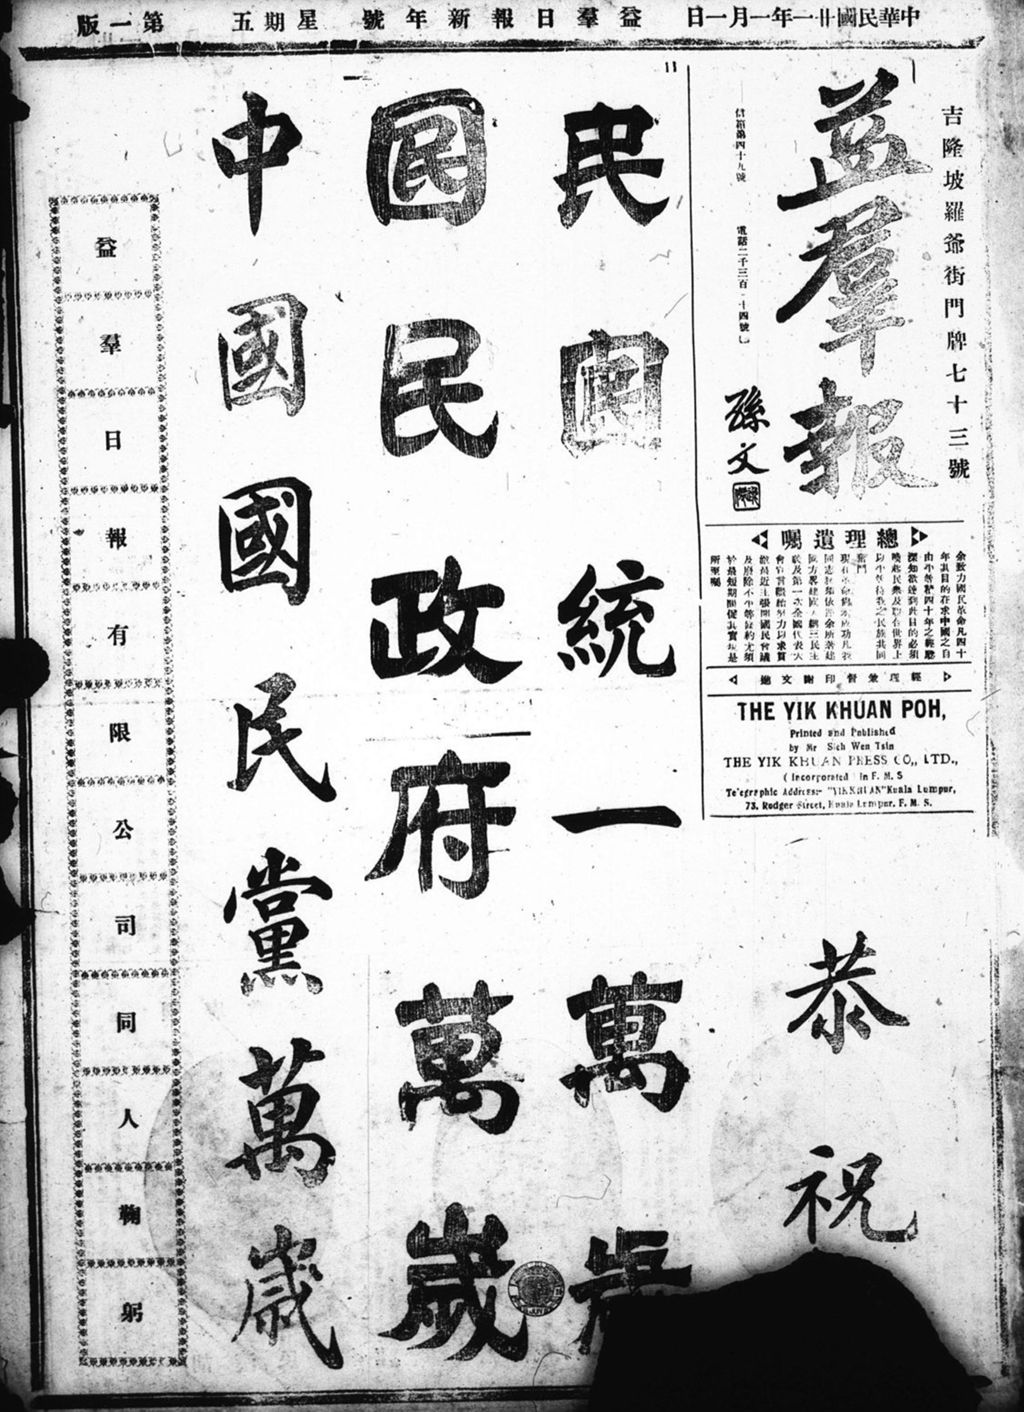 中華民國廿一年一月一日
益羣日報新年號
星期五
第一版
吉隆坡羅爺街門牌七十三號
益羣報
孫文
信箱第四十九號
電話二千三百十四號
總理遺囑
余致力國民革命凡四十
年其目的在求中國之自
由平等積四十年之經驗
深知欲達到此目的必須
喚起民衆及聯合世界上
以平等待我之民族共同
奮鬥
現在革命尚未成功凡我
同志務須依照余所著建
國方畧建國大綱三民主
義及第一次全國代表大
會宣言繼續努力以求貫
澈最近主張開國民會議
及廢除不平等條約尤須
於最短期間促其實現是
所至囑
經理兼督印謝文進
THE YIK KHUAN POH,
Printed and Published
by Mr Sieh Wen Tsin
THE YIK KHUAN PRESS CO., LTD.,
( Incorporated In F. M. S
Te'egraphic Address:- "YIKKHUAN" Kuala Lumpur,
73, Rodger Street, Kuala Lumpur, F. M. S.
恭祝
民國統一萬歲
國民政府萬歲
中國國民黨萬歲
益羣日報有限公司同人鞠躬